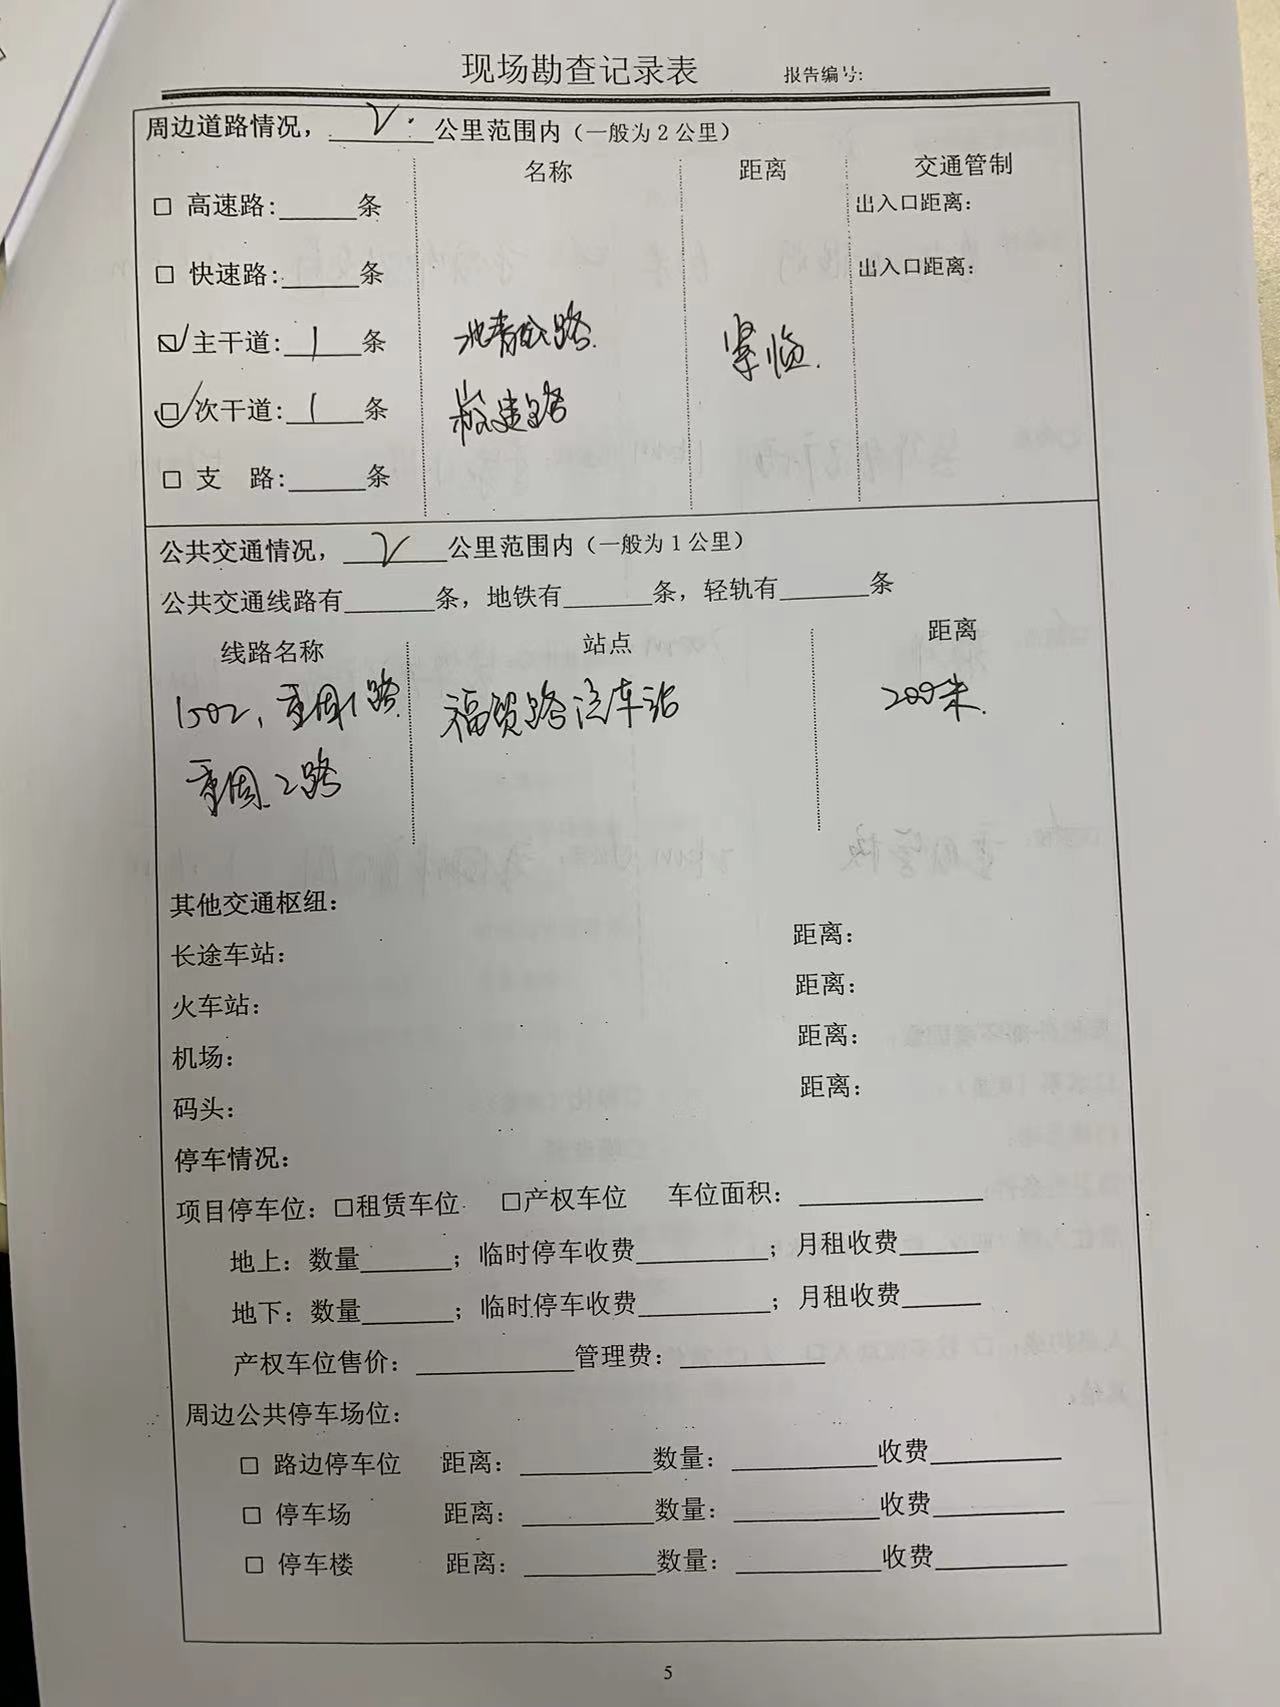 现场勘查记录表 报告编号:
周边道路情况，2公里范围内（一般为2公里）
名称 距离 交通管制
□ 高速路:______条 出入口距离：
□ 快速路:______条 出入口距离：
☑ 主干道: 1 条 北青公路 紧临
☑ 次干道: 1 条 崧建路
□ 支 路:______条
公共交通情况，2公里范围内（一般为1公里）
公共交通线路有______条，地铁有______条，轻轨有______条
线路名称 站点 距离
1502、重固1路 福贸路汽车站 200米
重固2路
其他交通枢纽：
长途车站： 距离：
火车站： 距离：
机场： 距离：
码头： 距离：
停车情况：
项目停车位：□租赁车位 □产权车位 车位面积：____________
地上：数量______；临时停车收费________；月租收费______
地下：数量______；临时停车收费________；月租收费______
产权车位售价：____________管理费：__________
周边公共停车场位：
□ 路边停车位 距离：________数量：________收费________
□ 停车场 距离：________数量：________收费________
□ 停车楼 距离：________数量：________收费________
5